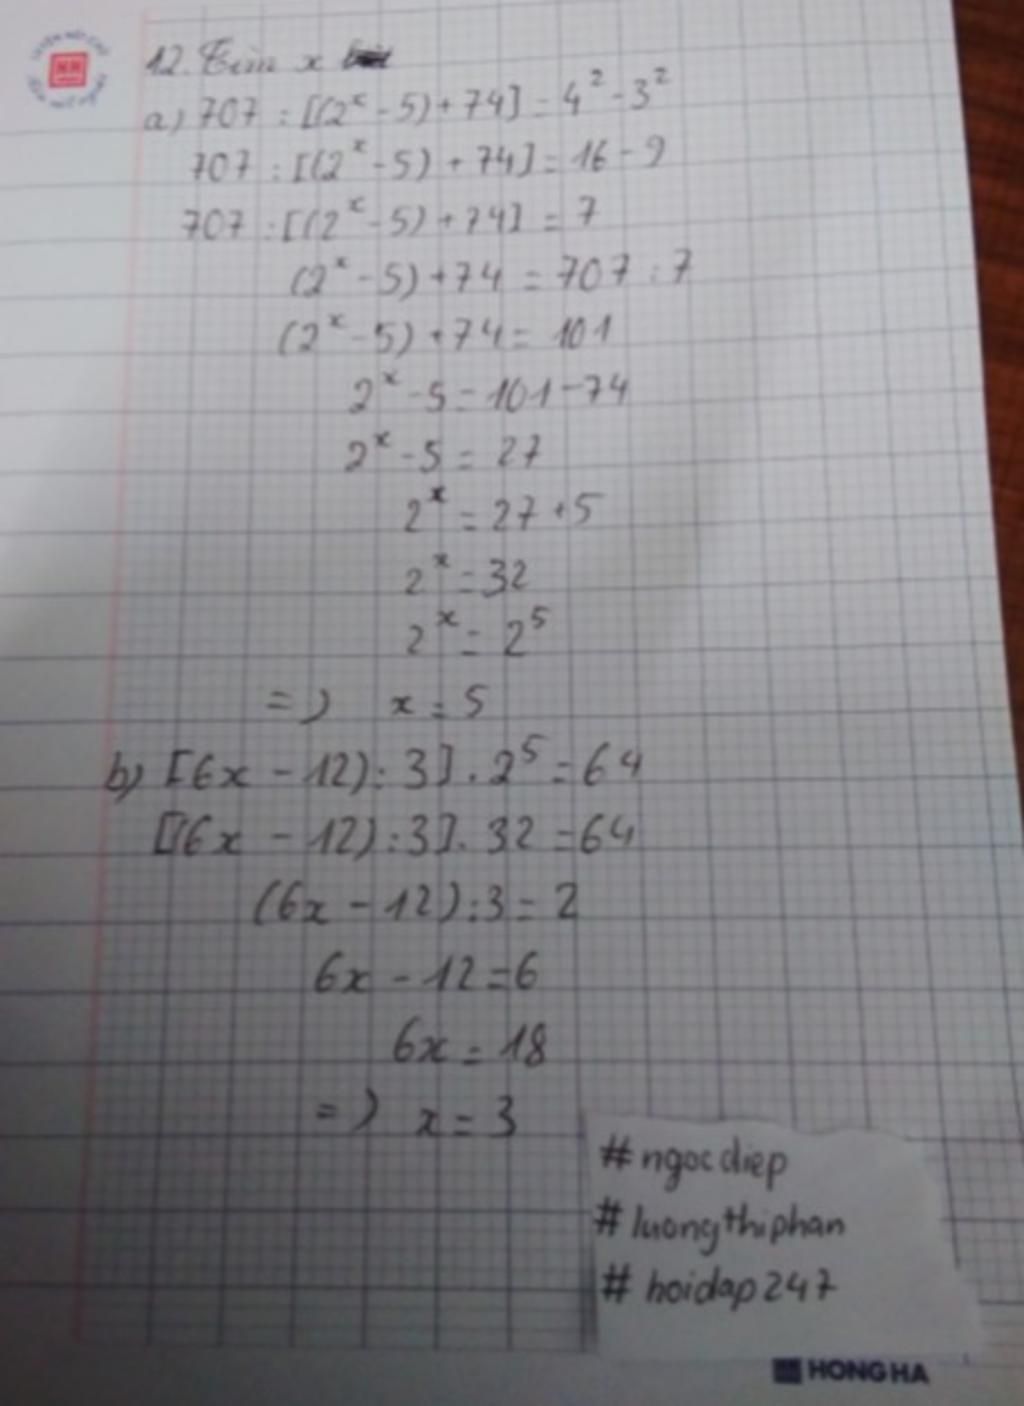 12. Tìm x
a) 707 : [(2ˣ - 5) + 74] = 4² - 3²
707 : [(2ˣ - 5) + 74] = 16 - 9
707 : [(2ˣ - 5) + 74] = 7
(2ˣ - 5) + 74 = 707 : 7
(2ˣ - 5) + 74 = 101
2ˣ - 5 = 101 - 74
2ˣ - 5 = 27
2ˣ = 27 + 5
2ˣ = 32
2ˣ = 2⁵
=) x = 5
b) [6x - 12) : 3] . 2⁵ = 64
[(6x - 12) : 3] . 32 = 64
(6x - 12) : 3 = 2
6x - 12 = 6
6x = 18
=) x = 3
# ngocdiep
# luongthiphan
# hoidap247
HONG HA